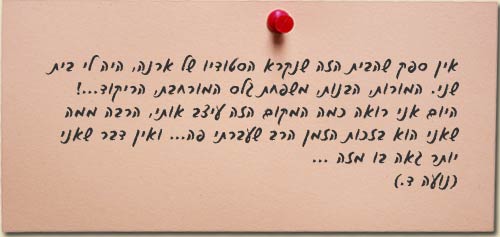 אין ספק שהבית הזה שנקרא הסטודיו של ארנה, היה לי בית
שני. המורות, הבנות, משפחת גלס המורחבת, הריקוד...!
היום אני רואה כמה המקום הזה עיצב אותי, הרבה ממה
שאני הוא בזכות הזמן הרב שעברתי פה... ואין דבר שאני
יותר גאה בו מזה ...
(נועה ד.)